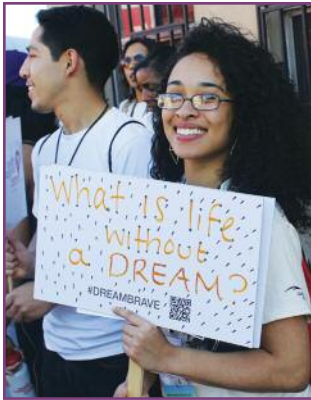 What is life
without
a DREAM?
#DREAMBRAVE